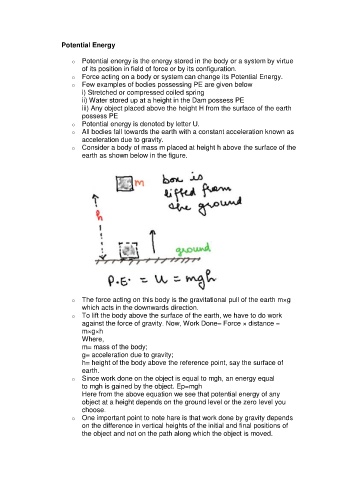 Potential Energy
o Potential energy is the energy stored in the body or a system by virtue
of its position in field of force or by its configuration.
o Force acting on a body or system can change its Potential Energy.
o Few examples of bodies possessing PE are given below
i) Stretched or compressed coiled spring
ii) Water stored up at a height in the Dam possess PE
iii) Any object placed above the height H from the surface of the earth
possess PE
o Potential energy is denoted by letter U.
o All bodies fall towards the earth with a constant acceleration known as
acceleration due to gravity.
o Consider a body of mass m placed at height h above the surface of the
earth as shown below in the figure.
m
box is
lifted from
the ground
h
ground
P.E. = U = mgh
o The force acting on this body is the gravitational pull of the earth m×g
which acts in the downwards direction.
o To lift the body above the surface of the earth, we have to do work
against the force of gravity. Now, Work Done= Force × distance =
m×g×h
Where,
m= mass of the body;
g= acceleration due to gravity;
h= height of the body above the reference point, say the surface of
earth.
o Since work done on the object is equal to mgh, an energy equal
to mgh is gained by the object. Ep=mgh
Here from the above equation we see that potential energy of any
object at a height depends on the ground level or the zero level you
choose.
o One important point to note hare is that work done by gravity depends
on the difference in vertical heights of the initial and final positions of
the object and not on the path along which the object is moved.